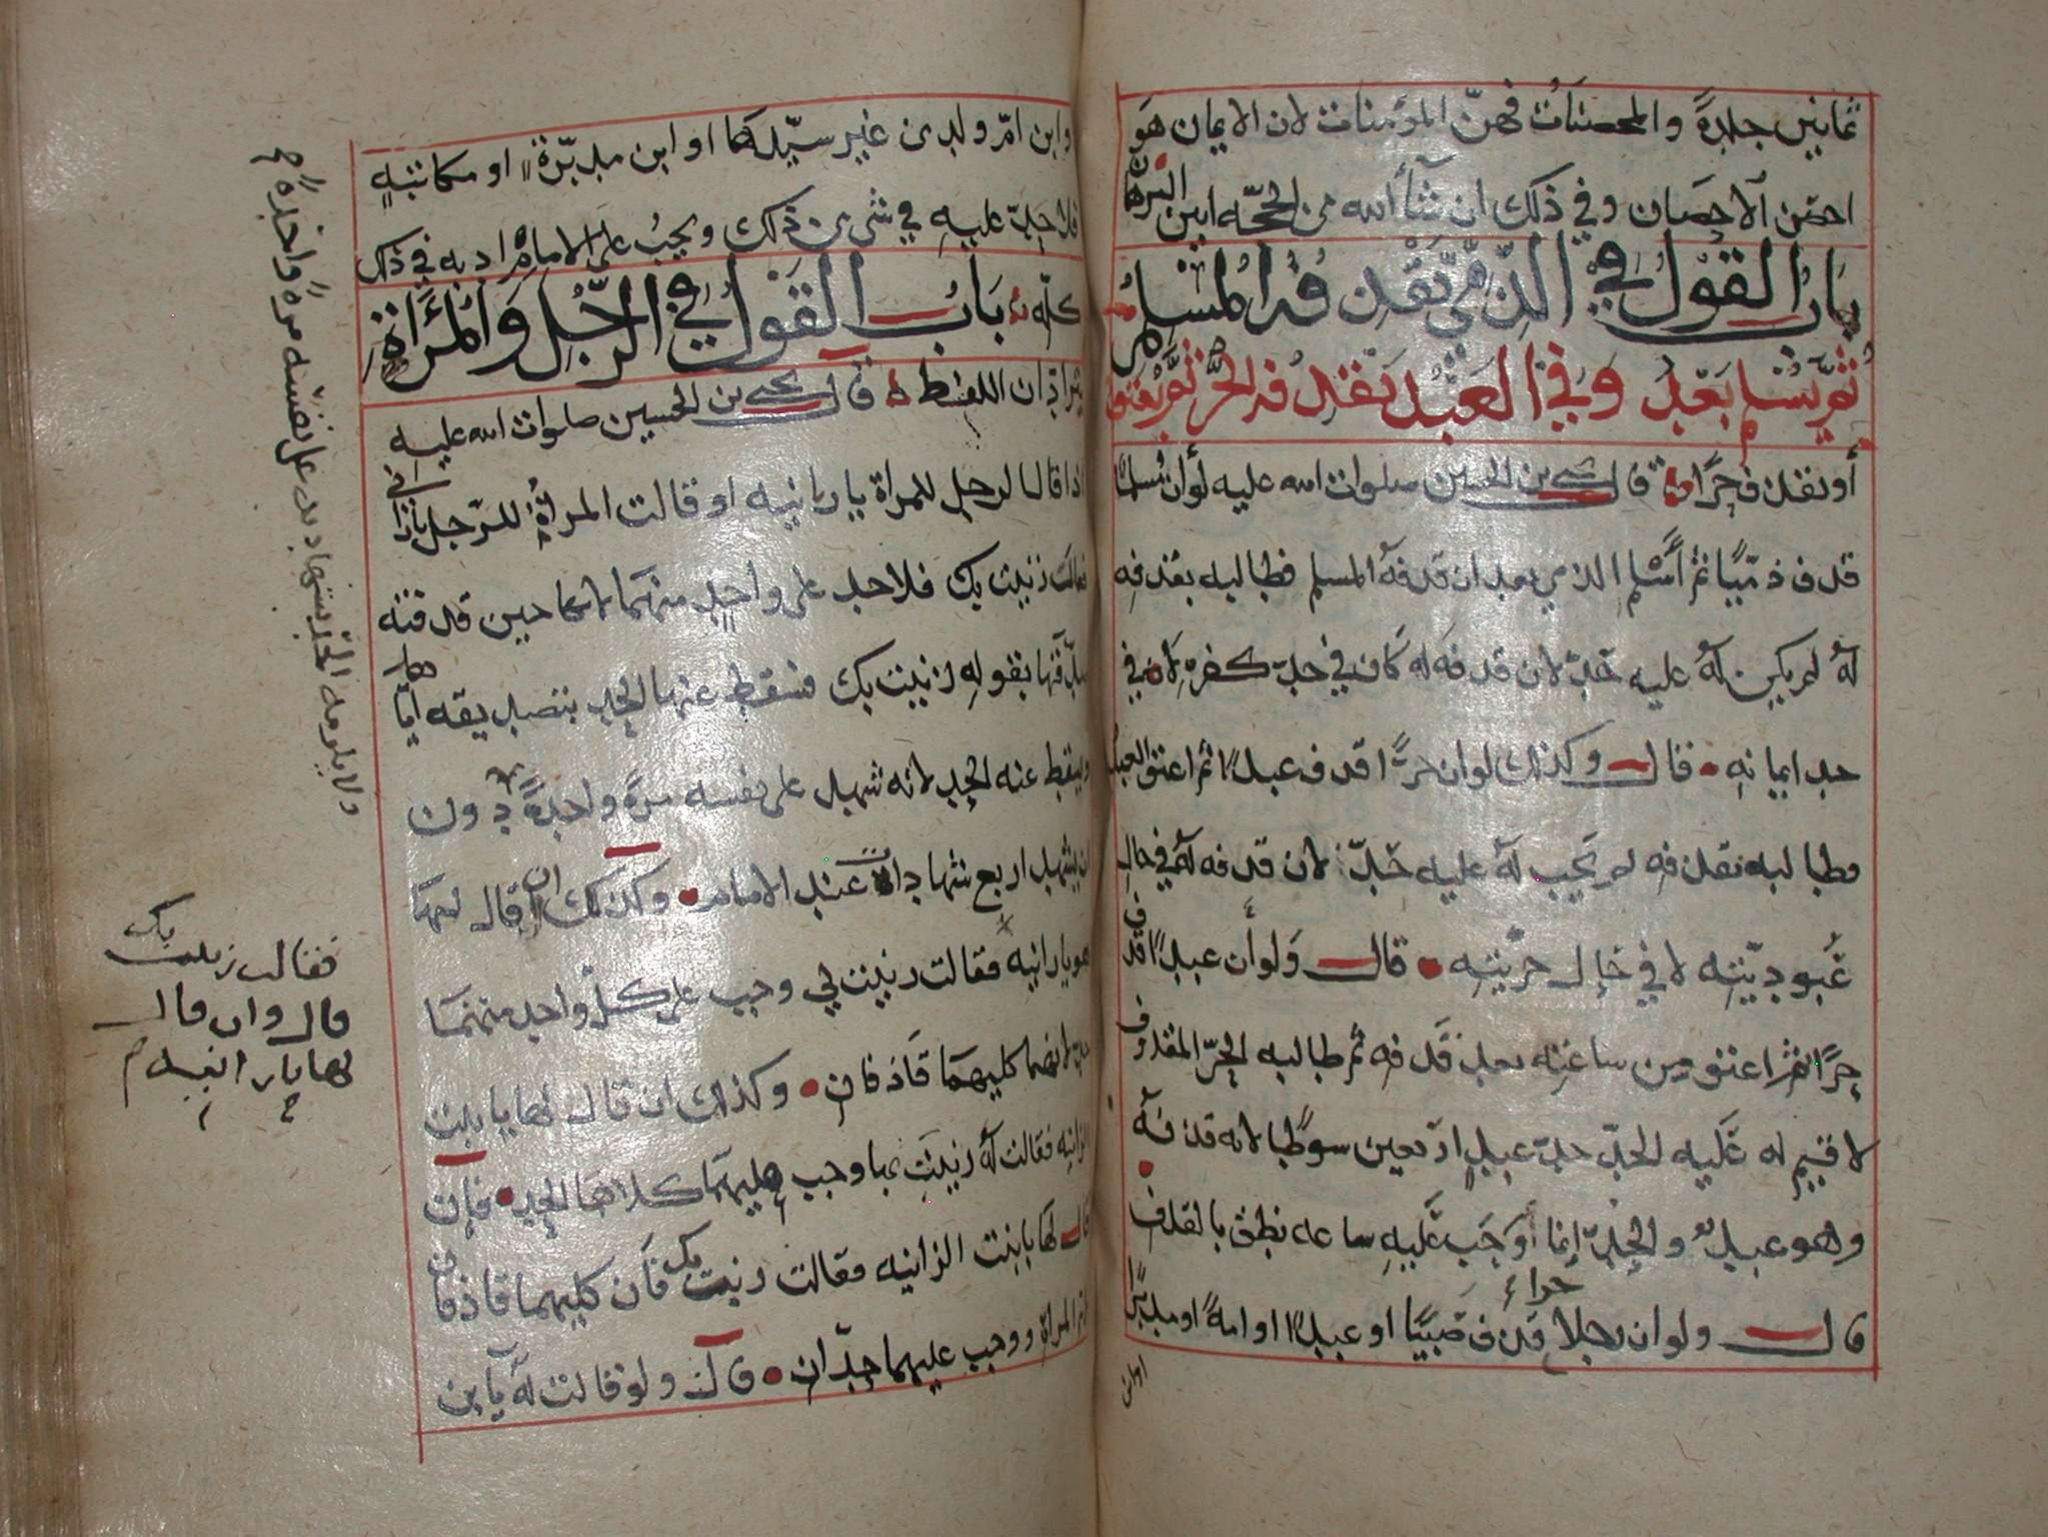 ثمانين جلدةً والمحصنات فهنّ المؤمنات لان الايمان هو
احصن الاحصان وفي ذلك ان شآء الله من الحجّه ابين البرهان
باب القول في الذمّي يقذف المسلم
ثم يسلم بعد وفي العبد يقذف الحرّ ثم يعتق
أو يقذف حرًا قال يحيى بن الحسين صلوات الله عليه لو أن مسلمًا
قذف ذمّيًا ثم أسلم الذمي بعد ان قذفه المسلم فطالبه بقذفه
لهُ لم يكن لهُ عليه حَدّ لان قذفه له كان في حدّ كفره لا في
حد ايمانه قال وكذلك لو ان حرًّا قذف عبدًا ثم اعتق العبد
وطالبه بقذفه لم يجب لهُ عليه حَدّ لان قذفه لهُ في حال
عُبوديّته لا في حال حرّيته قال ولو أن عبدًا قذف
حرًا ثم اعتق من ساعته بعد قذفه ثم طالبه الحرّ المقذوف
لاقيم له عَليه الحدّ حدّ عبدٍ اربعين سوطًا لانه قذفهُ
وهو عبدٌ والحدّ إنما أوجَب عَليهِ ساعه نطق بالقذف
قال ولو ان رجلا حرا قذف صَبيًا او عبدًا او امهً او مدبرًا
او ابن
وابن امّ ولد من غير سيّدها او ابن مدبّرة او مكاتبهٍ
فلا حدّ عليهِ في شي من ذلك ويجبُ على الامام ادبه في ذلك
كلّه باب القول في الرجل والمرأة
يترادان اللفظ قال يحيى بن الحسين صلوات الله عليه
اذا قال الرجل للمراة يا زانيه او قالت المرأةُ للرّجل يا زاني
فقالت زنيت بك فلا حد على واحدٍ منهما لانها حين قذفته
صدّقها بقوله زنيت بك فسقط عنها الحد بتصديقه اياها
ويسقط عنه الحد لانه شهد على نفسه مرةً واحدةً دون
ان يشهد اربع شهادات عند الامام وكذلك ان قال لها
هو يا زانيه فقالت زنيت بي وجب على كل واحد منهما
حدّ لانهما كليهما قاذفان وكذلك ان قال لها يا بنت
الزانيه فقالت لهُ زنيت بها وجب عليهما كلاهما الحد فان
قال لها يا بنت الزانيه فقالت زنيت بك فان كليهما قاذفان
لام المراة ووجب عليهما حدّان قال ولو قالت لهُ يا بن
ولا يلزمه الحد بشهادته على نفسه مرةً واحدةً
فقالت زنيت بك
قال وان قال
لها يا زانيه